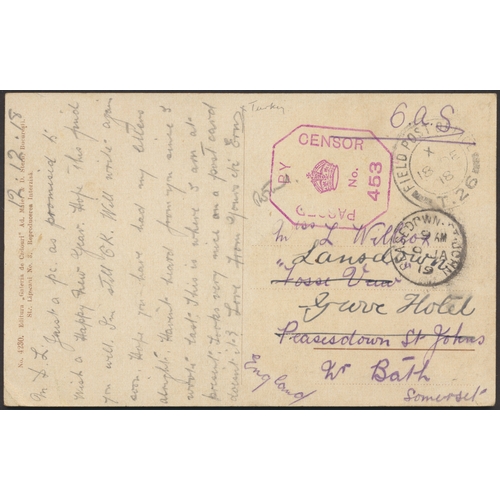 12.12.18
My D. L. Just a p.c. as promised to
wish a Happy New Year. Hope this find
you well. I'm still O.K. Will write again
soon. Hope you have had my letters
alright. Haven't heard from you since I
wrote last. This is where I am at
present. Looks very nice on a post card
doesn't it? Love from Yours ck Ern
Turkey
No. 4750. Editura „Galeria de Colonii" Ad. Maier & D. Stern Bucureşti
Str. Lipscani No. 2. Reproducerea interzisă.
O.A.S.
FIELD POST
X
18
T.26
PASSED BY CENSOR
No. 453
PEASEDOWN-ST-JOHN
9 AM
JA
19
Miss L Willcox
Lansdown
"Fosse View"
Grove Hotel
Peasedown St Johns
Nr Bath
Somerset
England